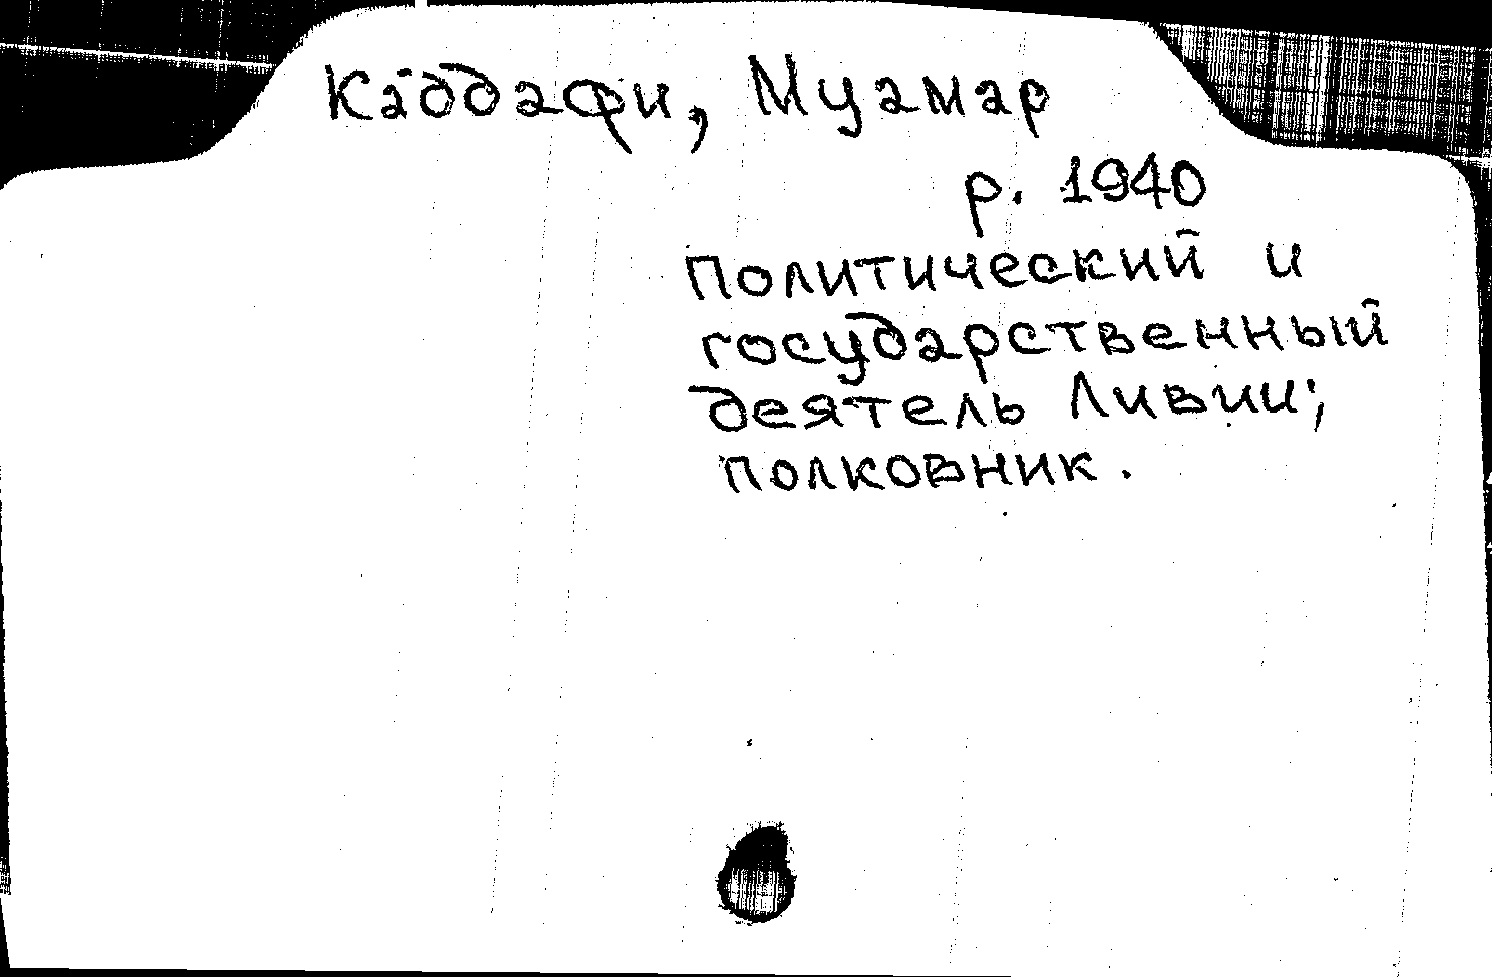 Каддафи, Муамар
р. 1940
политический и
государственный
деятель Ливии;
полковник.